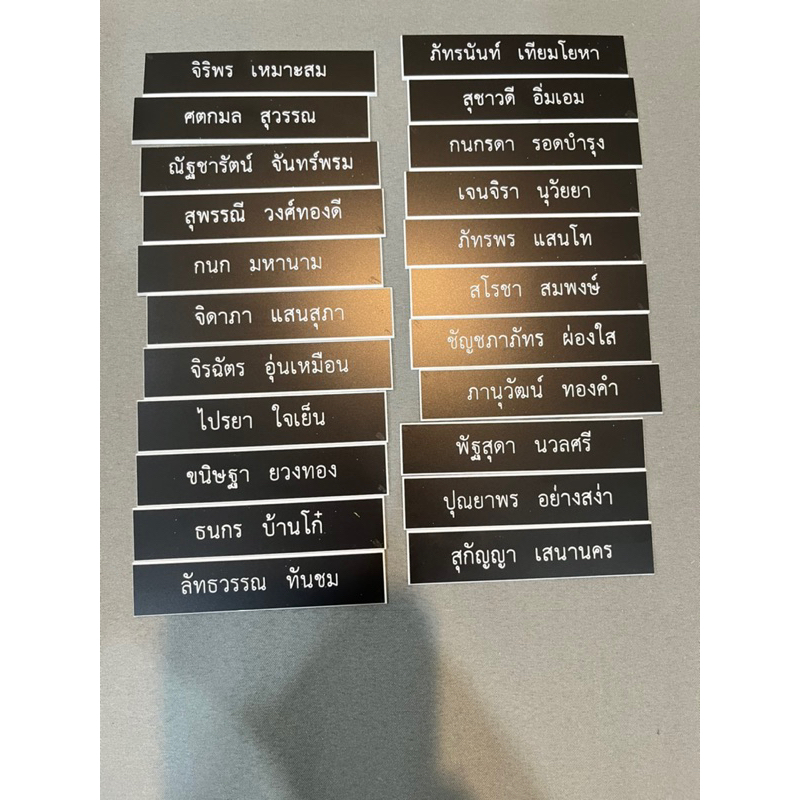 จิริพร เหมาะสม
ศตกมล สุวรรณ
ณัฐชารัตน์ จันทร์พรม
สุพรรณี วงศ์ทองดี
กนก มหานาม
จิดาภา แสนสุภา
จิรฉัตร อุ่นเหมือน
ไปรยา ใจเย็น
ขนิษฐา ยวงทอง
ธนกร บ้านโก๋
ลัทธวรรณ ทันชม
ภัทรนันท์ เทียมโยหา
สุชาวดี อิ่มเอม
กนกรดา รอดบำรุง
เจนจิรา นุวัยยา
ภัทรพร แสนโท
สโรชา สมพงษ์
ชัญชภาภัทร ผ่องใส
ภานุวัฒน์ ทองคำ
พัฐสุดา นวลศรี
ปุณยาพร อย่างสง่า
สุกัญญา เสนานคร